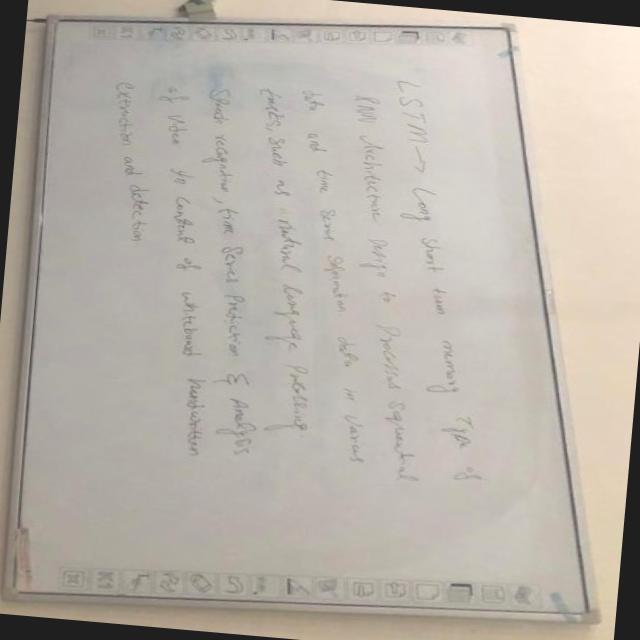 LSTM → Long Short term memory Type of
RNN Architecture Design to Processed Sequential
data and time Series Sequential data in various
tasks, such as natural language Processing
Speech recognition, time Series Prediction & Analysis
of Video in Context of whiteboard handwritten
extraction and detection